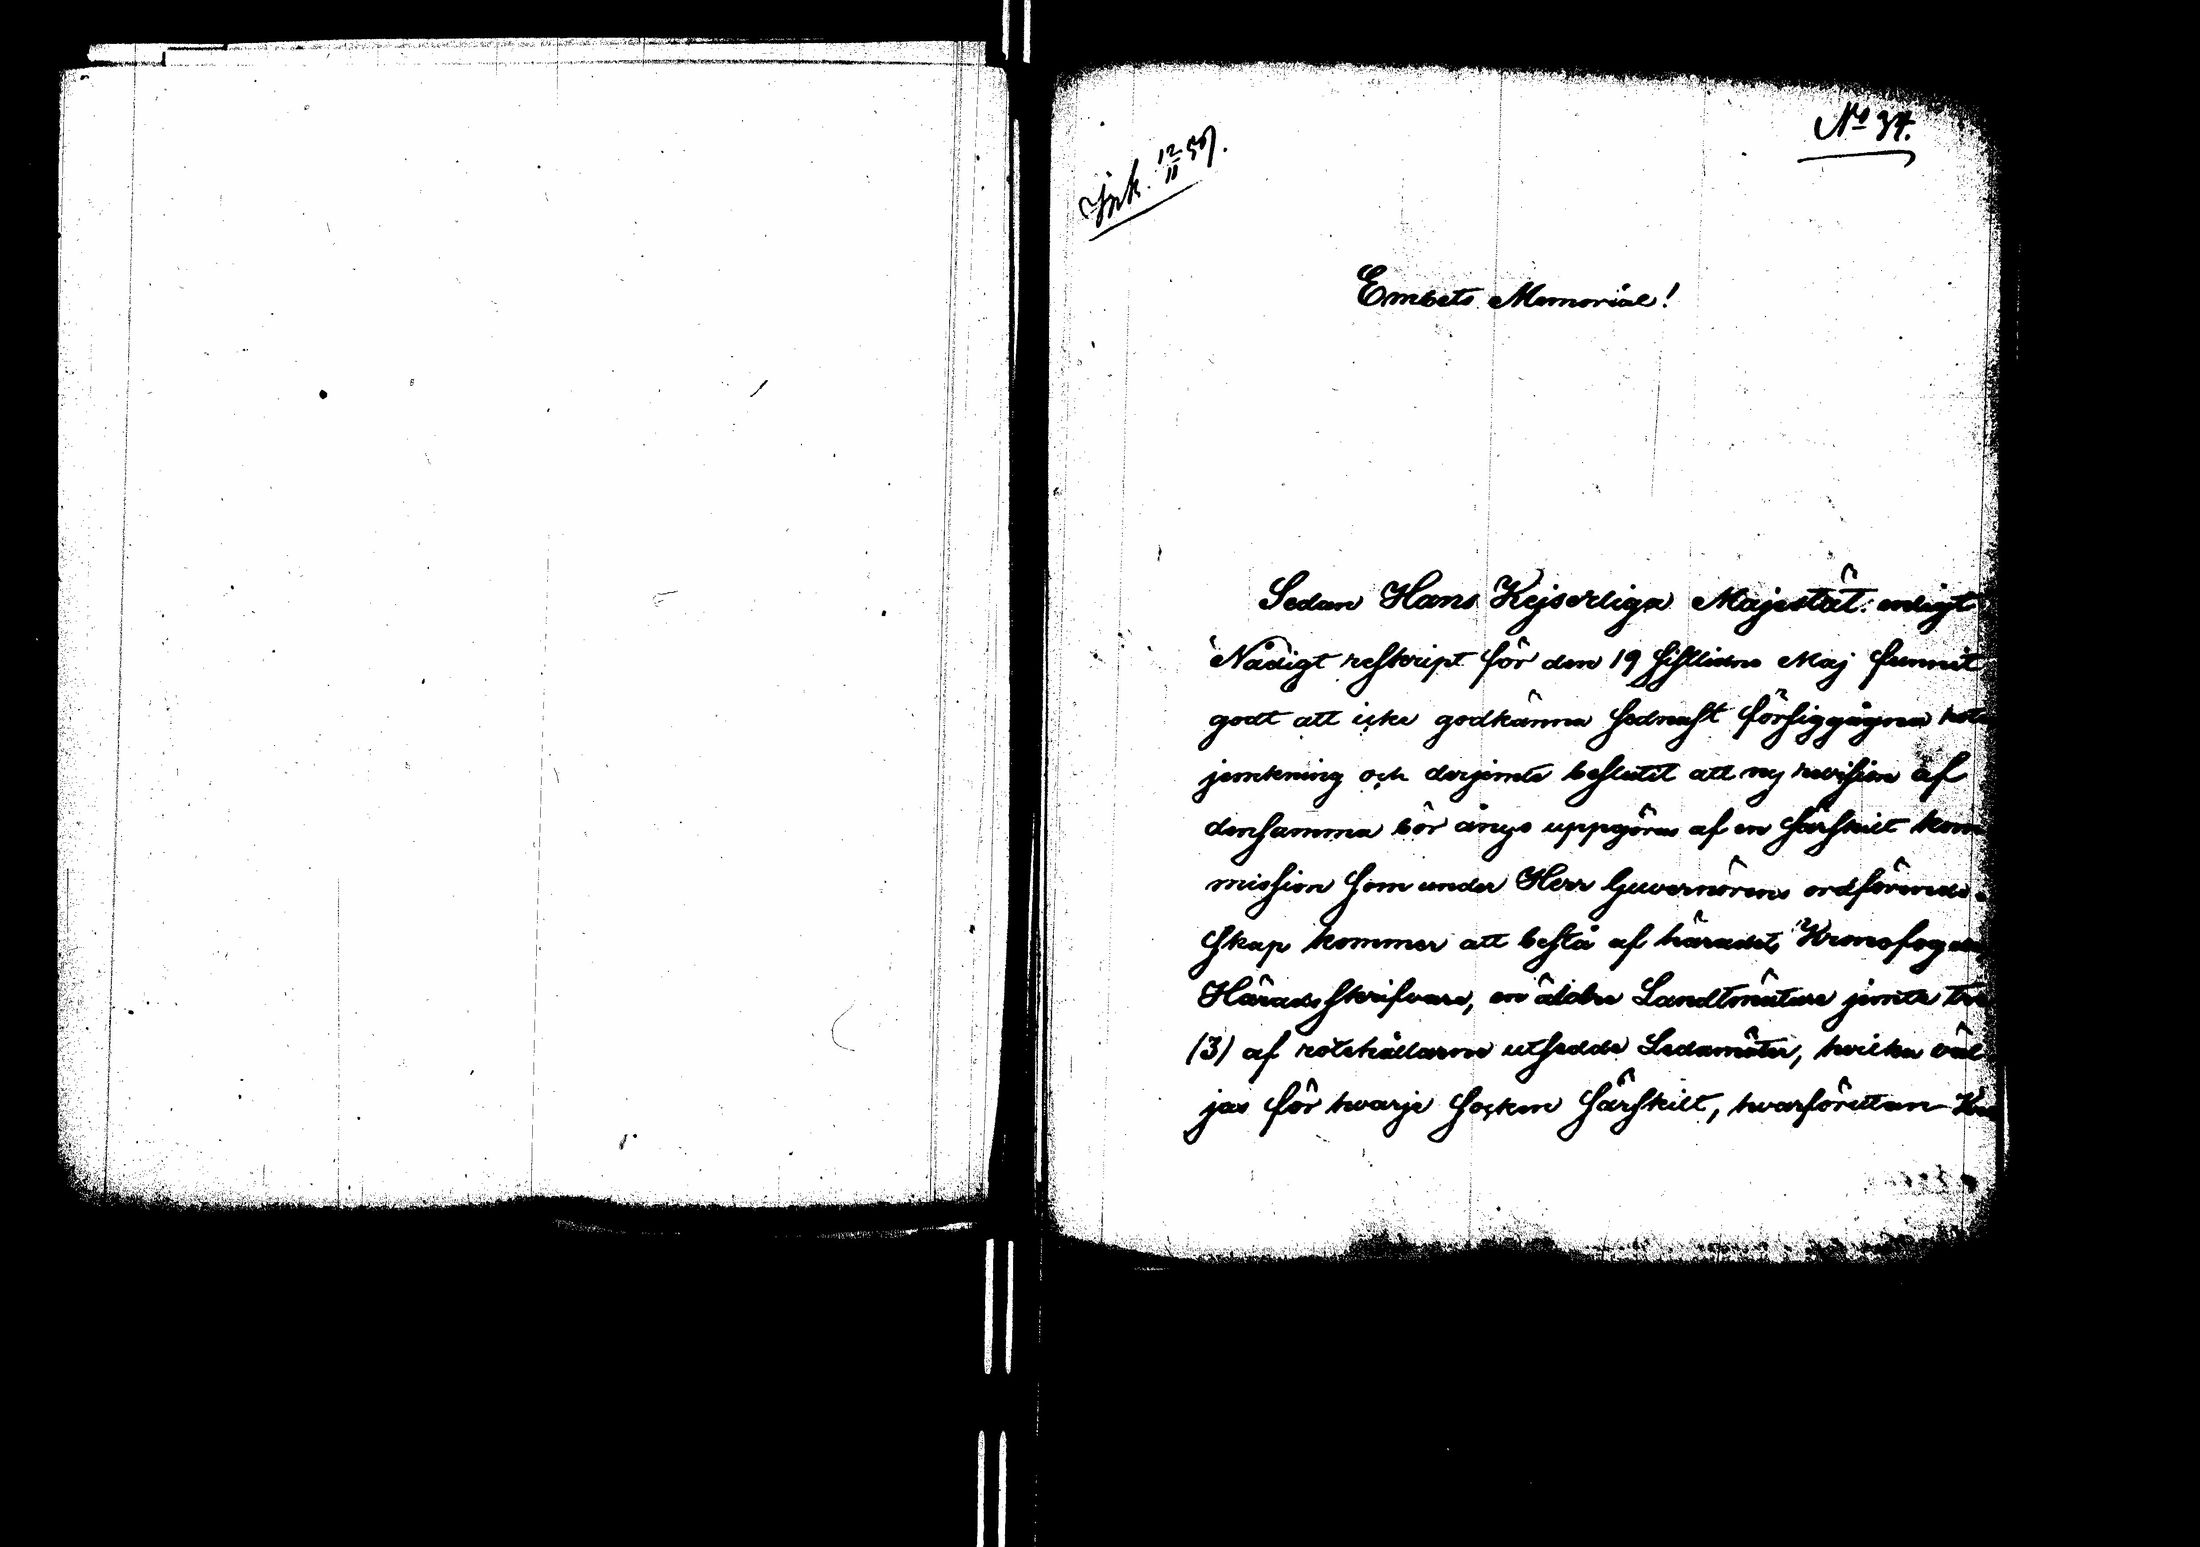 No 34.
Ink. 12/11 57.
Embets Memorial!
Sedan Hans Kejserliga Majestät enligt
Nådigt reskript för den 19 sistlidne Maj funnit
godt att icke godkänna sednast försiggågna rote
jemkning och derjemte beslutit att ny revision af
densamma bör ånyo uppgöras af en särskilt kom
mission som under Herr Guvernörens ordförande-
skap kommer att bestå af häradets Kronofogde,
Häradsskrifvare, en äldre Landtmätare jemte tre
(3) af rotehållarne utsedde Ledamöter, hvilka väl
jas för hvarje socken särskilt, hvarförutan